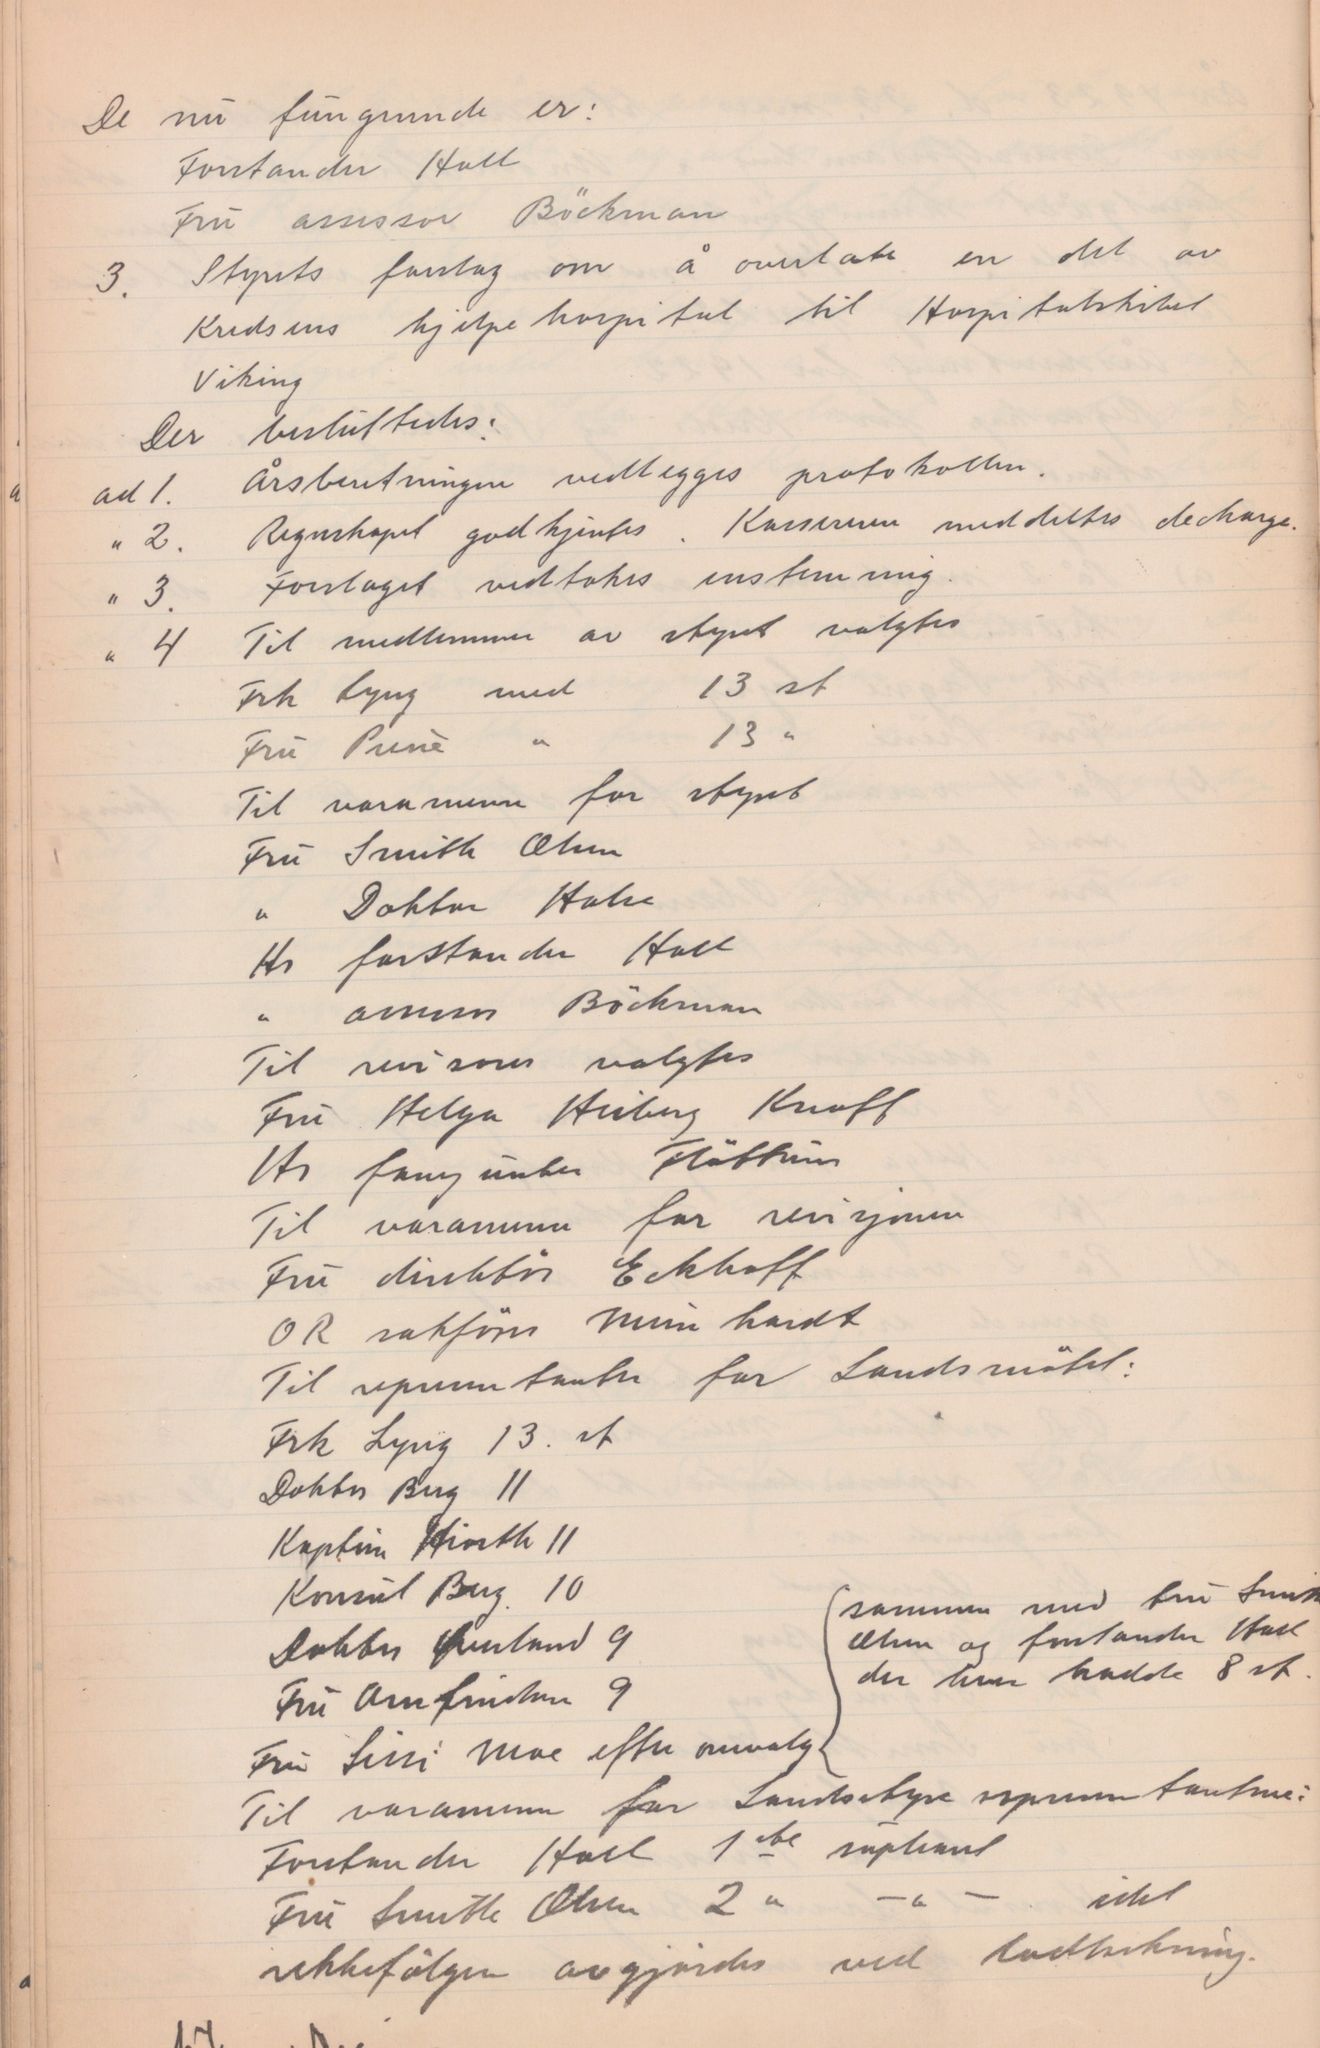 De nu fungerende er:
Forstander Hall
Fru assessor Böckman
3. Styrets forslag om å overlate en del av
Kredsens hjelpehospital til Hospitalskibet
Viking
Der besluttedes:
ad 1. Årsberetningen vedlegges protokollen.
" 2. Regnskapet godkjentes. Kassereren meddeltes decharge.
" 3. Forslaget vedtokes enstemmig.
" 4 Til medlemmer av styret valgtes
Frk Lyng med 13 st
Fru " 13 "
Til varamenn for styret
Fru Smith Olsen
" Doktor Halse
Hr forstander Hall
" assessor Böckman
Til revisorer valgtes
Fru Helga Heiberg Knoff
Hr Flöttum
Til varamenn for revisjonen
Fru direktör Eckhoff
O R sakförer Meinhardt
Til representanter for Landsmötet:
Frk Lyng 13. st
Doktor Berg 11
Kaptein Hiorth 11
Konsul Berg. 10
Doktor 9
Fru Arnfindsen 9
sammen med fru Smith
Olsen og forstander Hall
der hver hadde 8 st.
Fru Sissi Moe efter omvalg
Til varamenn for Landsstyre representantene:
Forstander Hall 1ste supleant
Fru Smith Olsen 2 " — " — idet
rekkefölgen avgjordes ved lodtrekning.